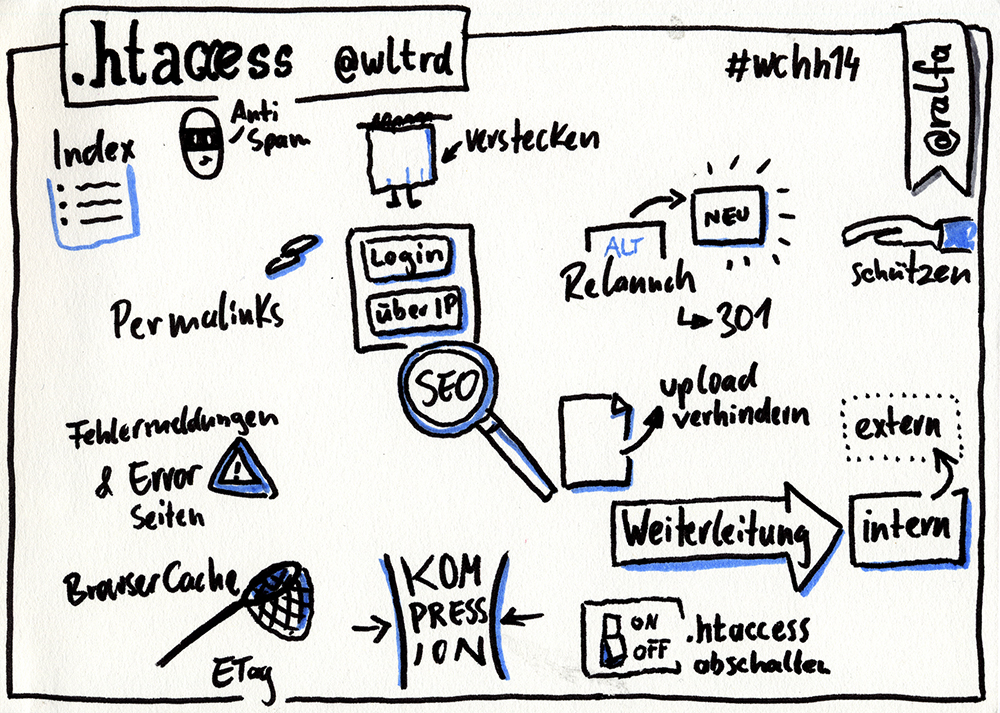 .htaccess @wltrd
#wchh14
@ralfa
Index
Anti
Spam
verstecken
Permalinks
Login
über IP
SEO
ALT
NEU
Relaunch
301
schützen
Fehlermeldungen
& Error
Seiten
upload
verhindern
extern
Weiterleitung
intern
BrowserCache
ETag
KOM
PRESS
ION
ON
OFF
.htaccess
abschalten